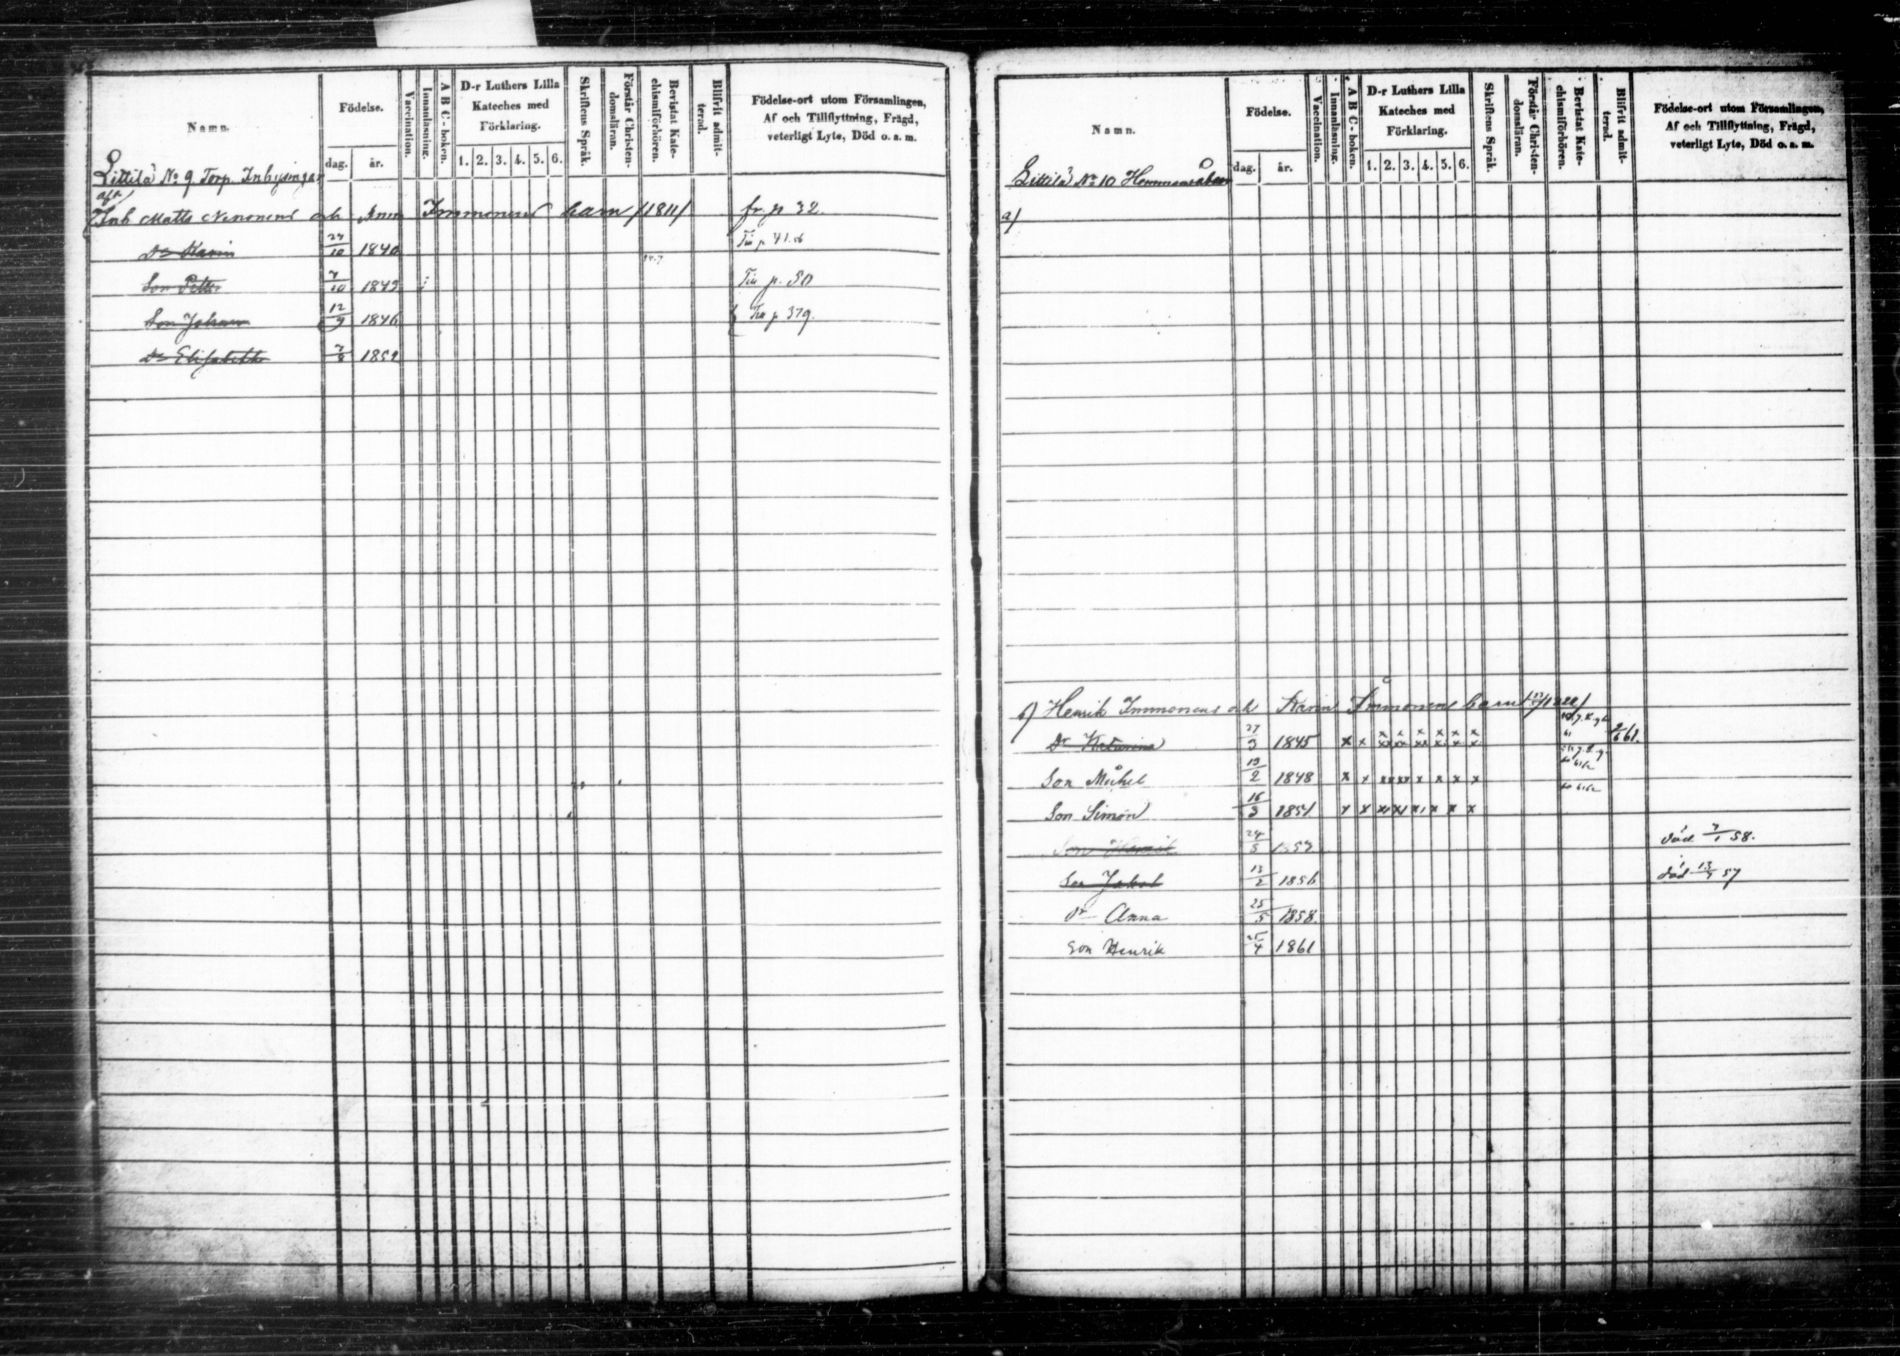 Namn.
Födelse.
dag.
år.
Vaccination.
Innanläsning.
A B C-boken.
D-r Luthers Lilla
Kateches med
Förklaring.
1. 2. 3. 4. 5. 6.
Skriftens Språk.
Förstår Christendomsläran.
Bevistat Katechismiförhören.
Blifvit admitterad.
Födelse-ort utom Församlingen,
Af och Tillflyttning, Frägd,
veterligt Lyte, Död o. a. m.
Littilä No 9 Torp. Inhysingar
Inh Matts Nenonens och Anna Immonens barn /1811/ fr. p 32.
Dr Karin 24/10 1840 Tr p 41.
Son Petter 7/10 1843 Tr p. 50
Son Johan 12/9 1846 Tr p 379.
Dr Elisabeth 7/8 1852
Namn.
Födelse.
dag.
år.
Vaccination.
Innanläsning.
A B C-boken.
D-r Luthers Lilla
Kateches med
Förklaring.
1. 2. 3. 4. 5. 6.
Skriftens Språk.
Förstår Christendomsläran.
Bevistat Katechismiförhören.
Blifvit admitterad.
Födelse-ort utom Församlingen,
Af och Tillflyttning, Frägd,
veterligt Lyte, Död o. a. m.
Littilä No 10
a)
b) Henrik Immonens och Karin barn 1822/
Dr Katarina 27/3 1845 x x x x x x x x 61.
Son Michel 13/2 1848 x x xx xx x x x x
Son Simon 16/3 1851 x x x x x x x x
Son Henrik 24/5 1853 död 7/1 58.
Son Jakob 13/2 1856 död 13/7 57
Dr Anna 25/5 1858.
Son Henrik 25/4 1861